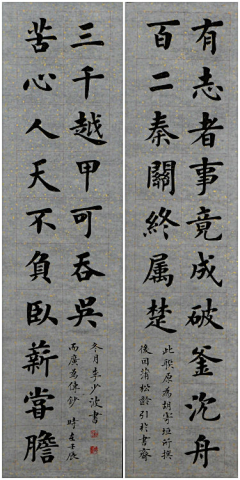 有志者事竟成破釜沈舟
百二秦關終属楚
此聯原為胡寄垣所撰
後因蒲松齡引於書齋
苦心人天不負臥薪嘗膽
三千越甲可吞吳
而廣為傳鈔 時在壬辰
冬月李少波書